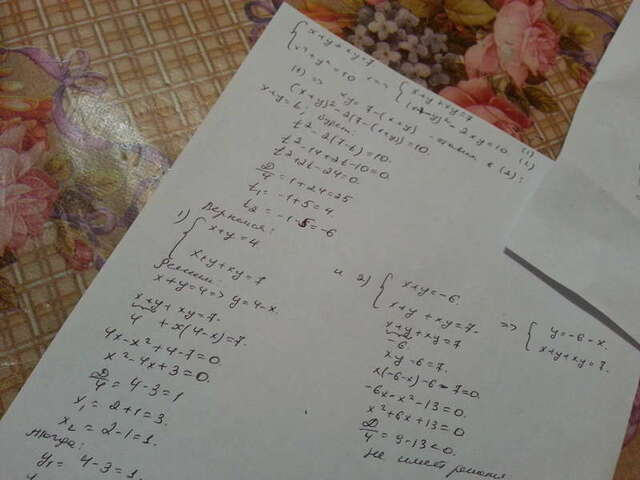 { x+y+xy=7
x²+y²=10 <=> { x+y+xy=7 (1)
(x+y)²-2xy=10 (2)
(1) => xy=7-(x+y) в (2):
(x+y)²-2(7-(x+y))=10.
x+y=t,
t²-2(7-t)=10.
t²-14+2t-10=0
t²+2t-24=0.
D/4=1+24=25
t₁=-1+5=4.
t₂=-1-5=-6
Вернемся:
1) { x+y=4
x+y+xy=7
Решим:
x+y=4 => y=4-x.
x+y+xy=7.
4+x(4-x)=7.
4x-x²+4-7=0.
x²-4x+3=0.
D/4=4-3=1
x₁=2+1=3.
x₂=2-1=1.
Тогда:
y₁=4-3=1.
и 2) { x+y=-6.
x+y+xy=7. => { y=-6-x.
x+y+xy=7.
x+y+xy=7
-6
xy-6=7.
x(-6-x)-6-7=0.
-6x-x²-13=0.
x²+6x+13=0
D/4=9-13<0.
не имеет решения